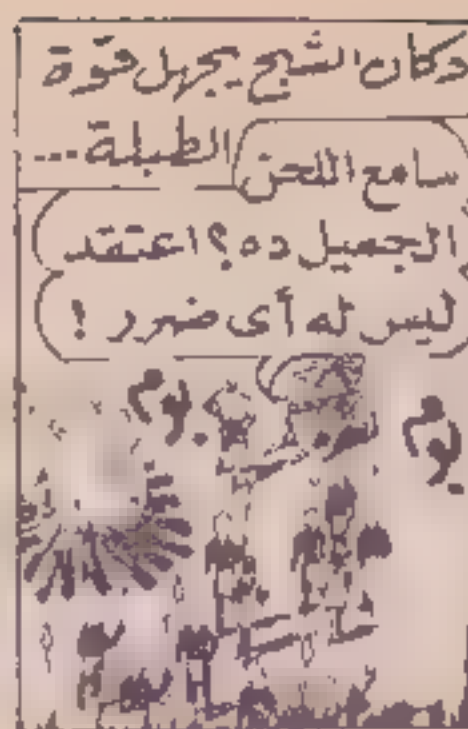 وكان الشبح يجهل قوة
الطبلة ...
سامع اللحن
الجميل ده؟ اعتقد
ليس له أى ضرر !
بوم
بوم